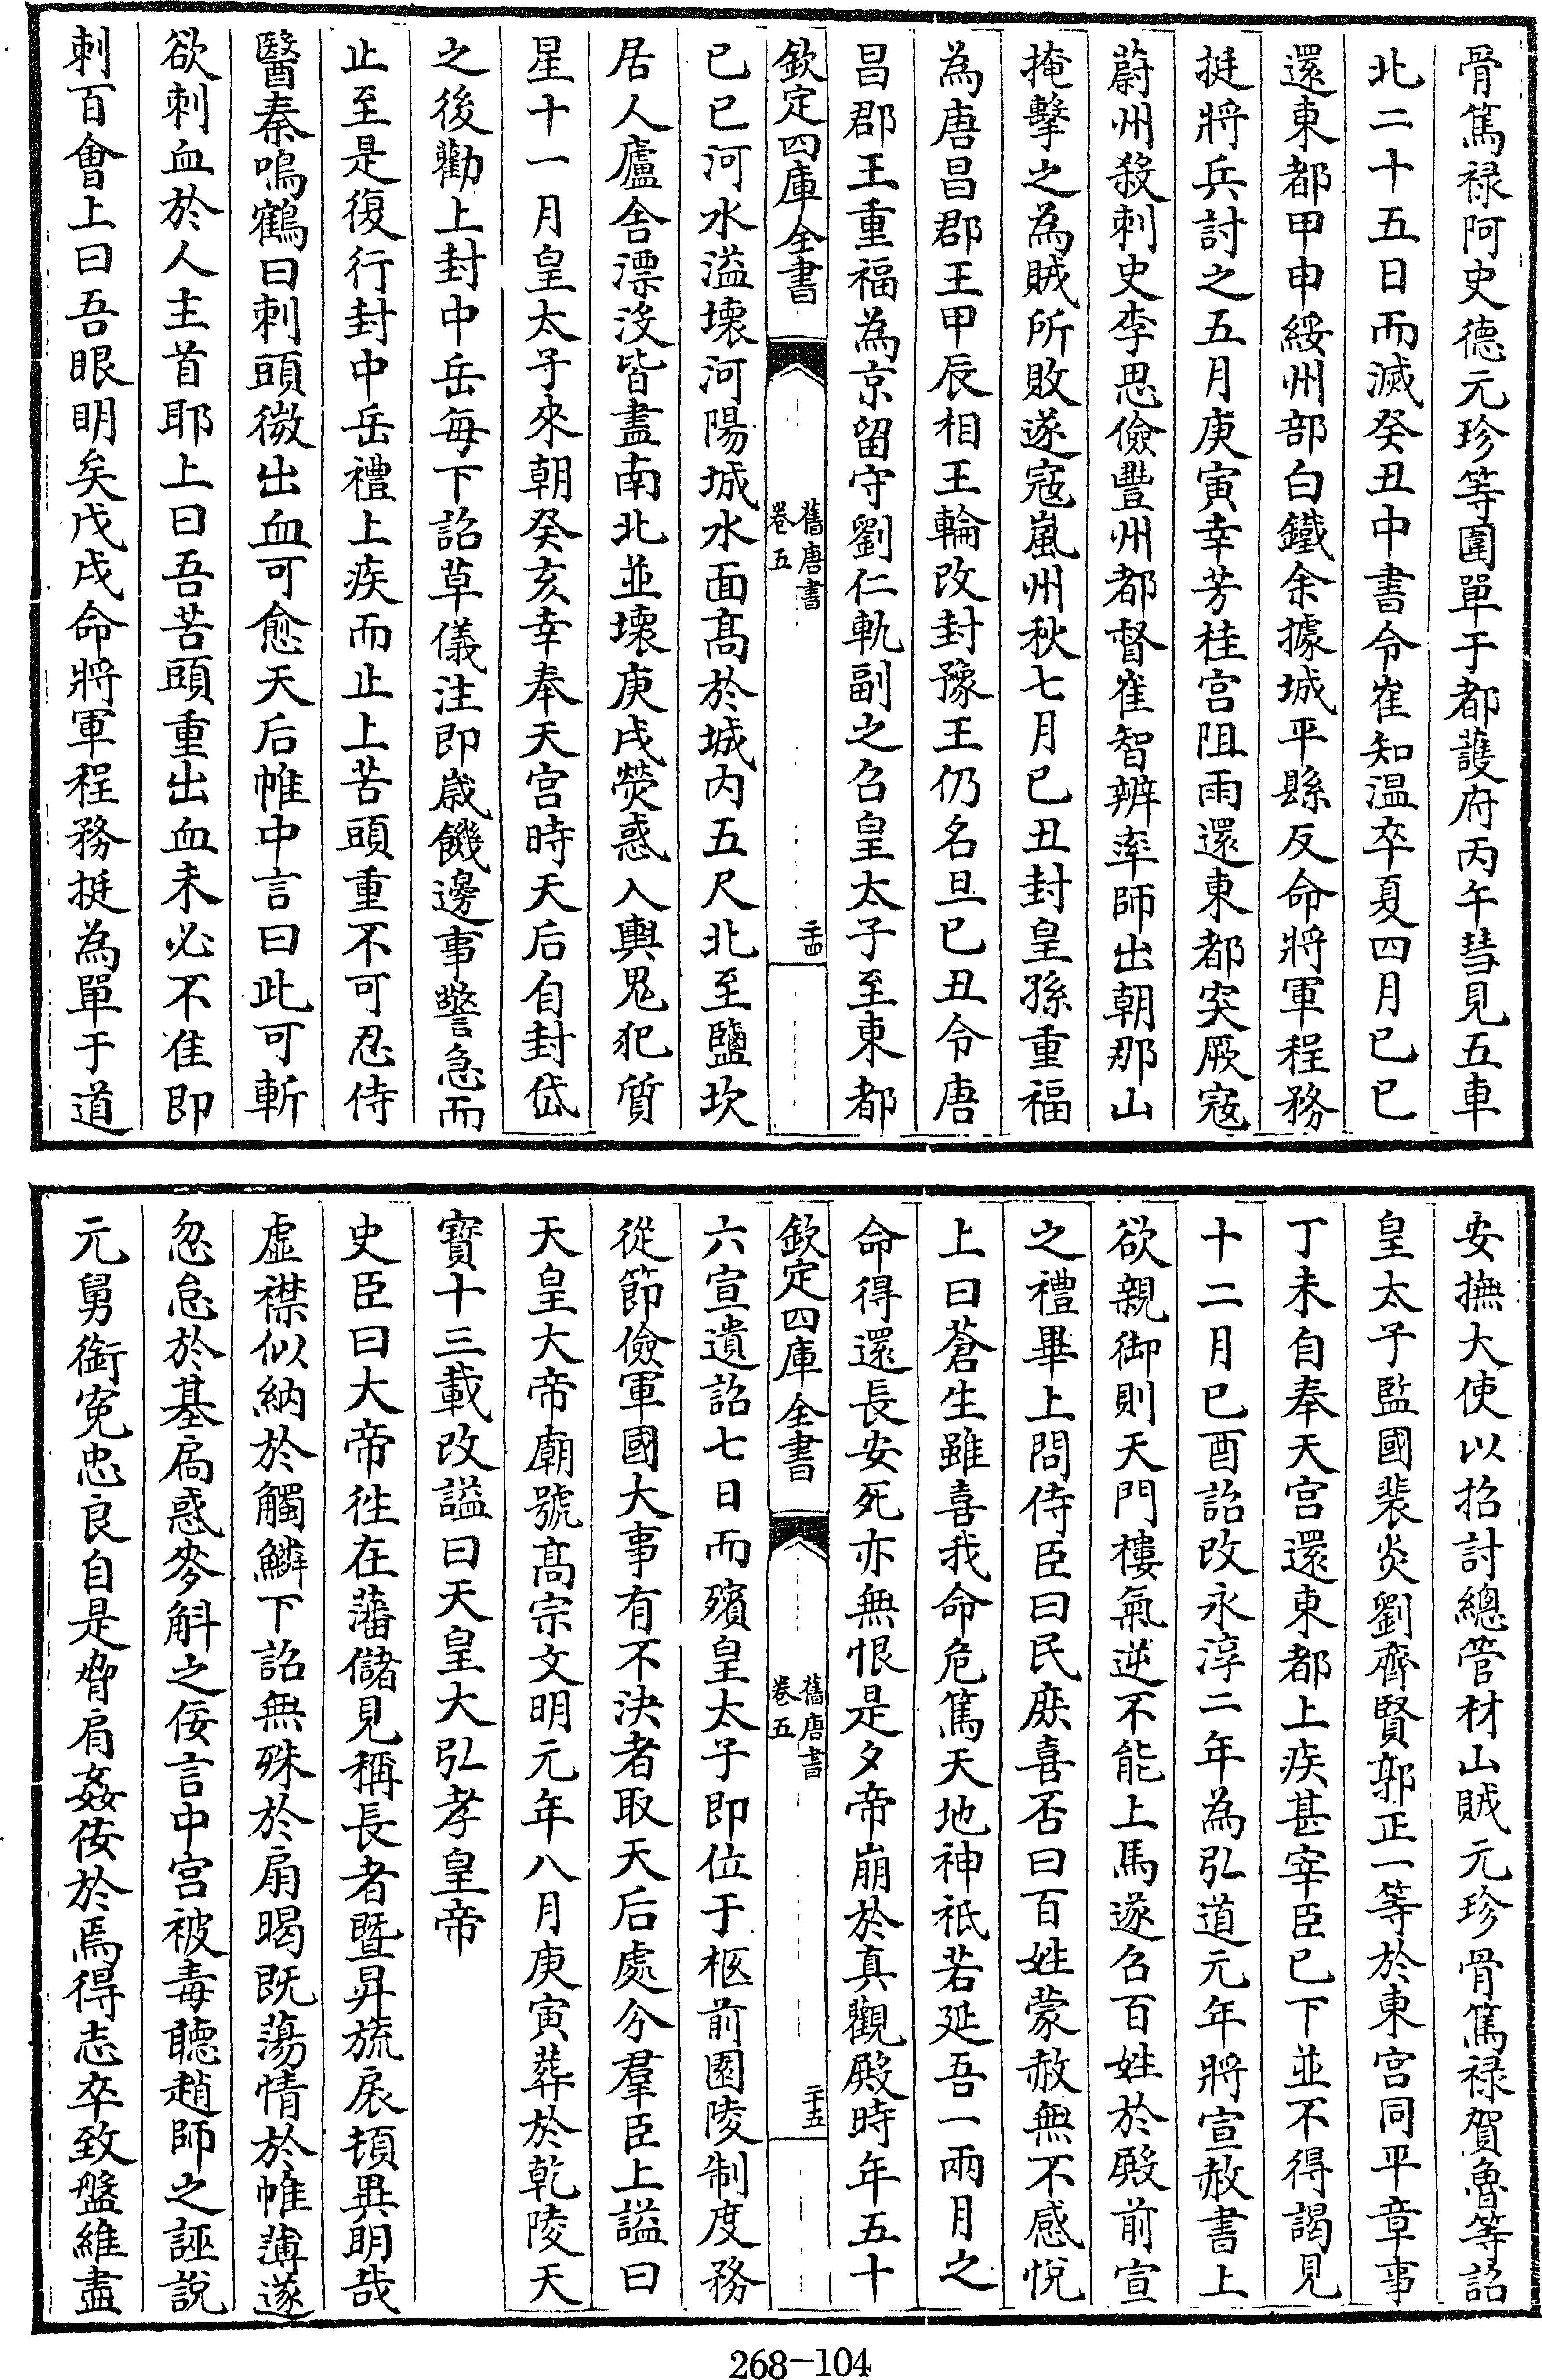 骨篤禄阿史德元珍等圍單于都護府丙午彗見五車
北二十五日而滅癸丑中書令崔知温卒夏四月已巳
還東都甲申綏州部白鐵余據城平縣反命將軍程務
挺將兵討之五月庚寅幸芳桂宫阻雨還東都突厥寇
蔚州殺刺史李思儉豐州都督崔智辨率師出朝那山
掩擊之為賊所敗遂寇嵐州秋七月已丑封皇孫重福
為唐昌郡王甲辰相王輪改封豫王仍名旦已丑令唐
昌郡王重福為京留守劉仁軌副之召皇太子至東都
欽定四庫全書
舊唐書
卷五
二十四
已巳河水溢壊河陽城水面髙於城内五尺北至鹽坎
居人廬舍漂沒皆盡南北並壊庚戌熒惑入輿鬼犯質
星十一月皇太子來朝癸亥幸奉天宫時天后自封岱
之後勸上封中岳每下詔草儀注即嵗饑邊事警急而
止至是復行封中岳禮上疾而止上苦頭重不可忍侍
醫秦鳴鶴曰刺頭微出血可愈天后帷中言曰此可斬
欲刺血於人主首耶上曰吾苦頭重出血未必不佳即
刺百會上曰吾眼明矣戊戌命將軍程務挺為單于道
安撫大使以招討總管材山賊元珍骨篤禄賀魯等詔
皇太子監國裴炎劉齊賢郭正一等於東宫同平章事
丁未自奉天宫還東都上疾甚宰臣已下並不得謁見
十二月已酉詔改永淳二年為弘道元年將宣赦書上
欲親御則天門樓氣逆不能上馬遂召百姓於殿前宣
之禮畢上問侍臣曰民庶喜否曰百姓蒙赦無不感悅
上曰蒼生雖喜我命危篤天地神祇若延吾一兩月之
命得還長安死亦無恨是夕帝崩於真觀殿時年五十
欽定四庫全書
舊唐書
卷五
二十五
六宣遺詔七日而殯皇太子即位于柩前園陵制度務
從節儉軍國大事有不決者取天后處分羣臣上謚曰
天皇大帝廟號髙宗文明元年八月庚寅葬於乾陵天
寳十三載改謚曰天皇大弘孝皇帝
史臣曰大帝徃在藩儲見稱長者暨昇旒扆頓異明哉
虛襟似納於觸鱗下詔無殊於扇暍既蕩情於帷薄遂
忽怠於基扃惑麥斛之佞言中宫被毒聽趙師之誣說
元舅銜冤忠良自是脅肩姦佞於焉得志卒致盤維盡
268-104